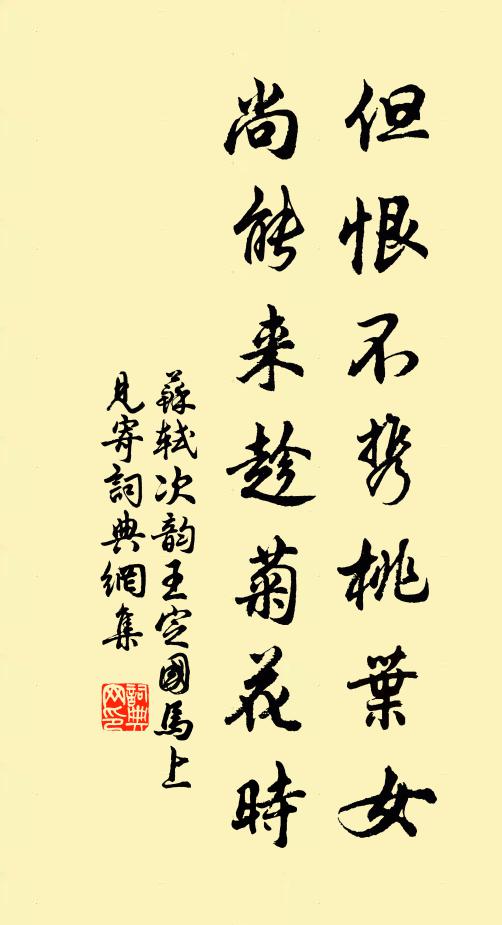 但恨不携桃葉女
尚能来趁菊花時
蘇軾次韵王定國馬上
見寄詞典網集
詞典网印